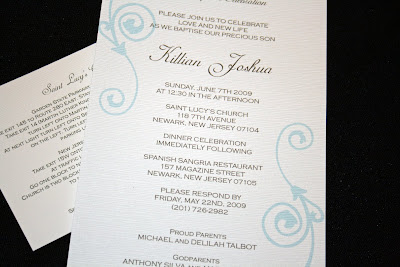 Please join us to celebrate
love and new life
as we baptise our precious son
Killian Joshua
Sunday, June 7th 2009
at 12:30 in the afternoon
Saint Lucy's Church
118 7th Avenue
Newark, New Jersey 07104
Dinner celebration
immediately following
Spanish Sangria Restaurant
157 Magazine Street
Newark, New Jersey 07105
Please respond by
Friday, May 22nd, 2009
(201) 726-2982
Proud Parents
Michael and Delilah Talbot
Godparents
Anthony Silva and
Saint Lucy's
Garden State Parkway
Take exit 145 to Route 280 East
Take exit 14
Turn left onto
Turn left onto
at next light turn left onto
on the left.
New
Take exit 15W onto
Go one block to
Church is two blocks